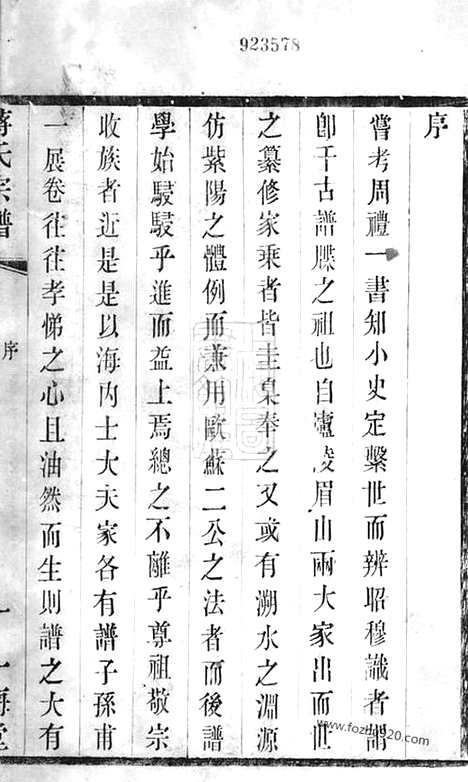 923578
序
嘗考周禮一書知小史定繫世而辨昭穆識者謂
即千古譜牒之祖也自廬陵眉山兩大家出而世
之纂修家乘者皆圭臬奉之又或有溯水之淵源
仿紫陽之體例而兼用歐蘇二公之法者而後譜
學始駸駸乎進而益上焉總之不離乎尊祖敬宗
收族者近是是以海内士大夫家各有譜子孫甫
一展卷往往孝悌之心且油然而生則譜之大有
蔣氏宗譜
序
一
海堂
www.fozhu920.com